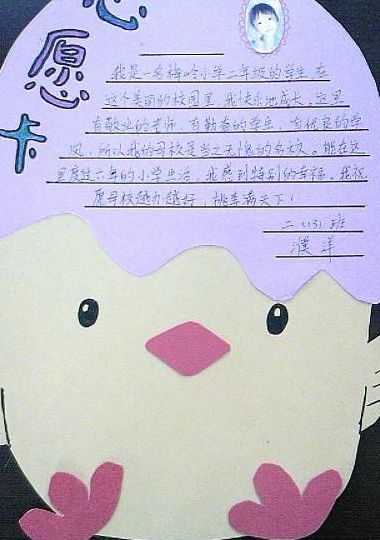 心愿卡
我是一名棒吟小学二年级的学生,在
这个美丽的校园里,我快乐地成长,这里
有敬业的老师,有勤奋的学生,有优良的学
风,所以我的母校是当之无愧的名校。能在这
里度过六年的小学生活,我感到特别的幸福。我祝
愿母校越办越好,桃李满天下!
二、(3)班
濮洋